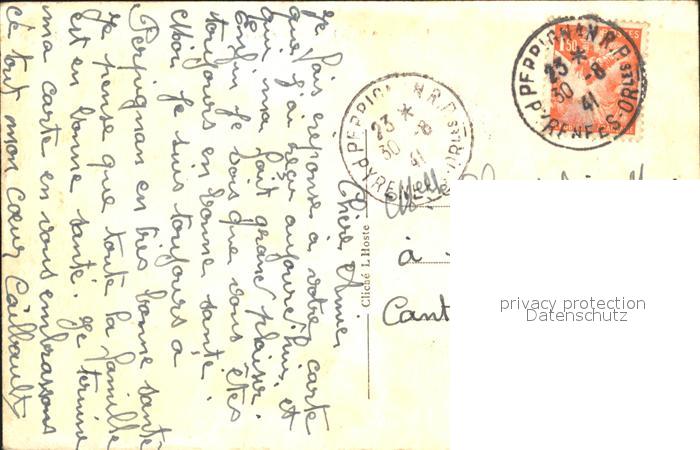 Chère Amie
Je fais réponse à votre carte
que j'ai reçue aujourd'hui et
qui m'a fait grand plaisir.
Enfin je vois que vous êtes
toujours en bonne santé.
Moi je suis toujours à
Perpignan en très bonne santé
Je pense que toute la famille
est en bonne santé. Je termine
ma carte en vous embrassant
de tout mon cœur
Cliché L Hoste
PERPIGNAN R.P.
23 * 30 -8 41
PYRENEES-ORles
PERPIGNAN R.P.
23 * 30 -8 41
PYRENEES-ORles
1F50
POSTES
Melle
à
Cant
privacy protection
Datenschutz